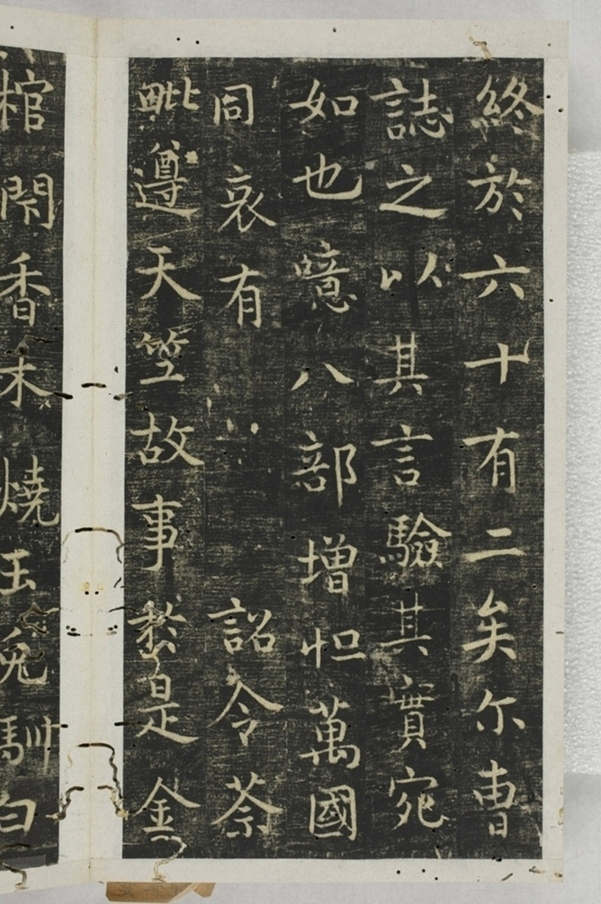 終於六十有二矣尓曹
誌之以其言驗其實宛
如也噫八部增怛萬國
同哀有詔令荼
毗遵天竺故事於是金
棺香木燒玉兔馴白